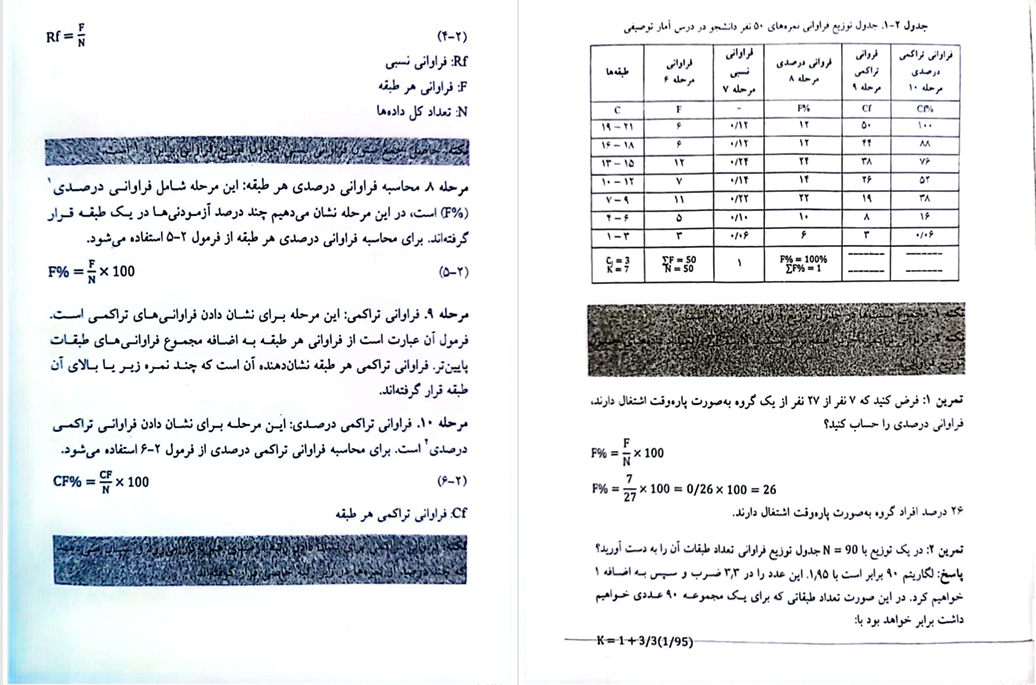 جدول ۲-۱. جدول توزیع فراوانی نمره‌های ۵۰ نفر دانشجو در درس آمار توصیفی
طبقه‌ها فراوانی مرحله ۶ فراوانی نسبی مرحله ۷ فروانی درصدی مرحله ۸ فروانی تراکمی مرحله ۹ فراوانی تراکمی درصدی مرحله ۱۰
C F - F% Cf Cf%
۱۹ – ۲۱ ۶ ۰/۱۲ ۱۲ ۵۰ ۱۰۰
۱۶ – ۱۸ ۶ ۰/۱۲ ۱۲ ۴۴ ۸۸
۱۳ – ۱۵ ۱۲ ۰/۲۴ ۲۴ ۳۸ ۷۶
۱۰ – ۱۲ ۷ ۰/۱۴ ۱۴ ۲۶ ۵۲
۷ – ۹ ۱۱ ۰/۲۲ ۲۲ ۱۹ ۳۸
۴ – ۶ ۵ ۰/۱۰ ۱۰ ۸ ۱۶
۱ – ۳ ۳ ۰/۰۶ ۶ ۳ ۰/۰۶
Cᵢ = 3 ∑F = 50 ۱ F% = 100% ------- -------
K = 7 N = 50 ∑F% = 1 ------- -------
تمرین ۱: فرض کنید که ۷ نفر از ۲۷ نفر از یک گروه به‌صورت پاره‌وقت اشتغال دارند،
فراوانی درصدی را حساب کنید؟
F% = F/N × 100
F% = 7/27 × 100 = 0/26 × 100 = 26
۲۶ درصد افراد گروه به‌صورت پاره‌وقت اشتغال دارند.
تمرین ۲: در یک توزیع با N = 90 جدول توزیع فراوانی تعداد طبقات آن را به دست آورید؟
پاسخ: لگاریتم ۹۰ برابر است با ۱,۹۵. این عدد را در ۳,۳ ضرب و سپس به اضافه ۱
خواهیم کرد. در این صورت تعداد طبقاتی که برای یک مجموعه ۹۰ عددی خواهیم
داشت برابر خواهد بود با:
K = 1 + 3/3(1/95)
Rf = F/N (۴-۲)
Rf: فراوانی نسبی
F: فراوانی هر طبقه
N: تعداد کل داده‌ها
مرحله ۸ محاسبه فراوانی درصدی هر طبقه: این مرحله شامل فراوانی درصدی۱
(F%) است، در این مرحله نشان می‌دهیم چند درصد آزمودنی‌ها در یک طبقه قرار
گرفته‌اند. برای محاسبه فراوانی درصدی هر طبقه از فرمول ۲-۵ استفاده می‌شود.
F% = F/N × 100 (۵-۲)
مرحله ۹. فراوانی تراکمی: این مرحله برای نشان دادن فراوانی‌های تراکمی است.
فرمول آن عبارت است از فراوانی هر طبقه به اضافه مجموع فراوانی‌های طبقات
پایین‌تر. فراوانی تراکمی هر طبقه نشان‌دهنده آن است که چند نمره زیر یا بالای آن
طبقه قرار گرفته‌اند.
مرحله ۱۰. فراوانی تراکمی درصدی: این مرحله برای نشان دادن فراوانی تراکمی
درصدی۲ است. برای محاسبه فراوانی تراکمی درصدی از فرمول ۲-۶ استفاده می‌شود.
CF% = CF/N × 100 (۶-۲)
Cf: فراوانی تراکمی هر طبقه